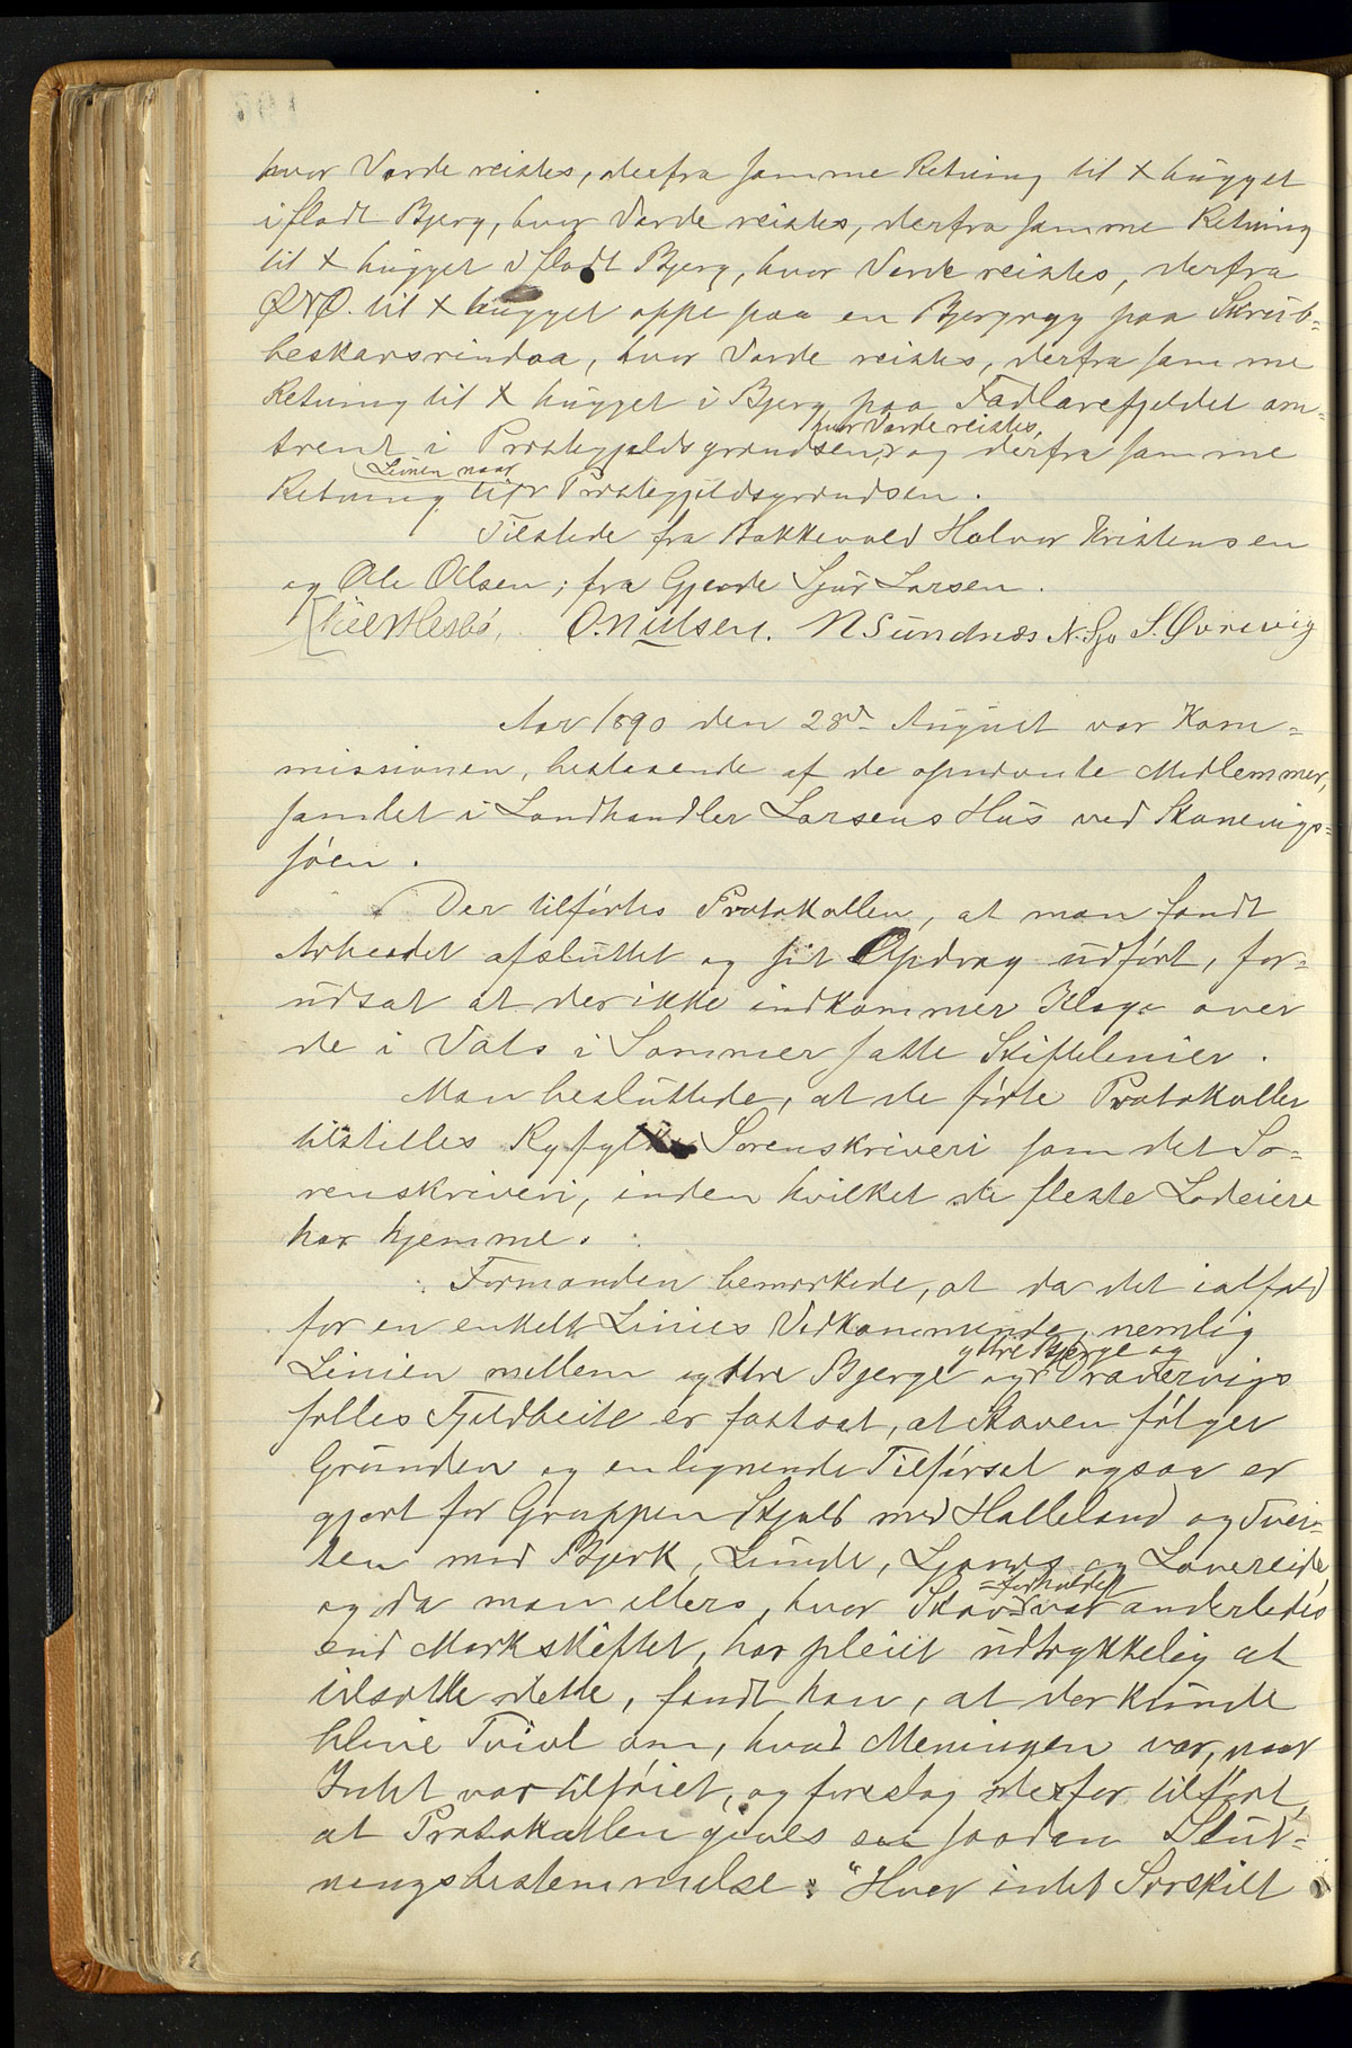 hvor Varde reistes, derfra samme Retning til x hugget
i fladt Bjerg, hvor Varde reistes, derfra samme Retning
til x hugget i fladt Bjerg, hvor Varde reistes, derfra
ØNØ. til x hugget oppe paa en Bjergryg paa Skrub=
beskarsrindaa, hvor Varde reistes, derfra samme
Retning til x hugget i Bjerg paa Fadlarefjeldet om=
hvor Varde reistes,
trent i Præstegjeldsgrændsen, og derfra samme
Linien naar
Retning til Præstegjeldsgrændsen.
Tilstede fra Bakkevold Halvor Kristensen
og Ole Olsen; fra Gjerde Sjur Larsen.
O. Nilsen. N Sundnæs N. Sjo S. Øvrevig
Aar 1890 den 28de August var Kom=
missionen, bestaaende af de opnævnte Medlemmer,
samlet i Landhandler Larsens Hus ved Skanevigs=
søen.
Der tilførtes Protokollen, at man fandt
Arbeidet afsluttet og sit Opdrag udført, for=
udsat at der ikke indkommer Klage over
de i Vats i Sommer satte Skiftelinier.
Man besluttede, at de førte Protokoller
tilstilles Ryfylke Sorenskriveri som det So=
renskriveri, inden hvilket de fleste Lodeiere
har hjemme.
Formanden bemærkede, at da det ialfald
for en enkelt Linies Vedkommende, nemlig
yttre Bjerge og
Linien mellem yttre Bjerge og Dravervigs
fælles Fjeldbeite er fastsat, at Skoven følger
Grunden og en lignende Tilførsel ogsaa er
gjort for Gruppen Skjold med Halleland og Tvei=
ten med Bjerk, Lunde, Ljones og Lovereide,
=forholdet
og da man ellers, hvor Skov var anderledes
end Markskiftet, har pleiet udtrykkelig at
tilsætte dette, fandt han, at der kunde
blive Tvivl om, hvad Meningen var, naar
Intet var tilføiet, og foreslog derfor tilført,
at Protokollen gives saadan Slut=
ningsbestemmelse: "Hvor intet Særskilt